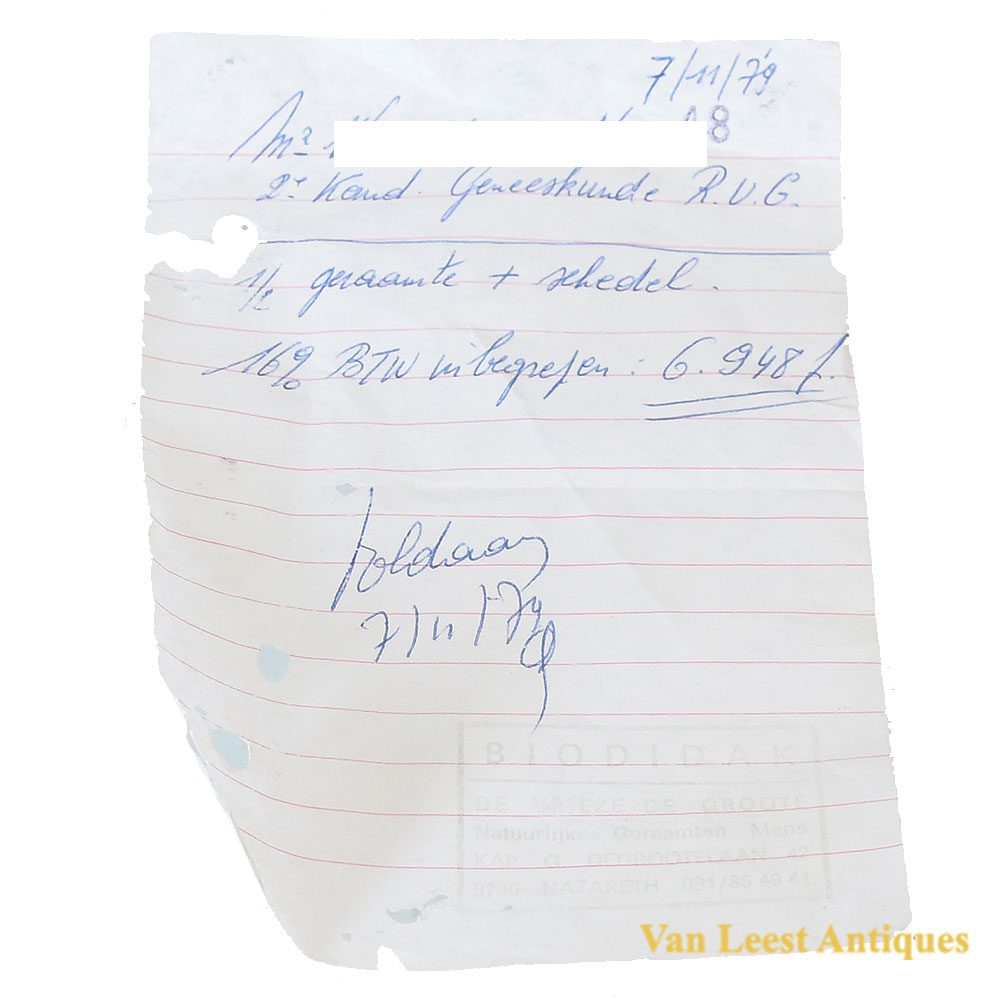 7/11/79
Mr 48
2e Kand. Geneeskunde R.U.G.
1/2 geraamte + schedel.
16% BTW inbegrepen : 6.948 f.
Voldaan
7/11/79
BIODIDAK
DE VRIEZE-DE GROOTE
Natuurlijke Geraamten Mens
KAP. G. DEGROOTELAAN 42
9730 NAZARETH 091/85 49 41
Van Leest Antiques